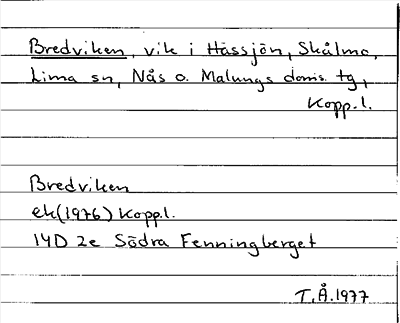 Bredviken, vik i Hässjön, Skålmo,
Lima sn, Nås o. Malungs doms. tg,
Kopp.l.
Bredviken
ek(1976) Kopp.l.
14D 2e Södra Fenningberget
T.Å.1977